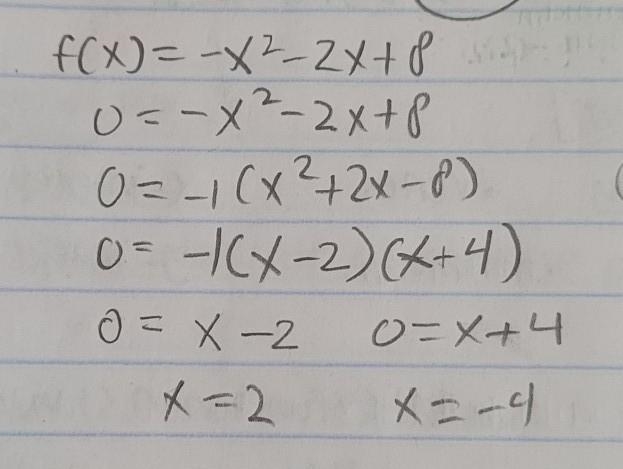 f(x) = -x² - 2x + 8
0 = -x² - 2x + 8
0 = -1(x² + 2x - 8)
0 = -1(x - 2)(x + 4)
0 = x - 2 0 = x + 4
x = 2 x = -4